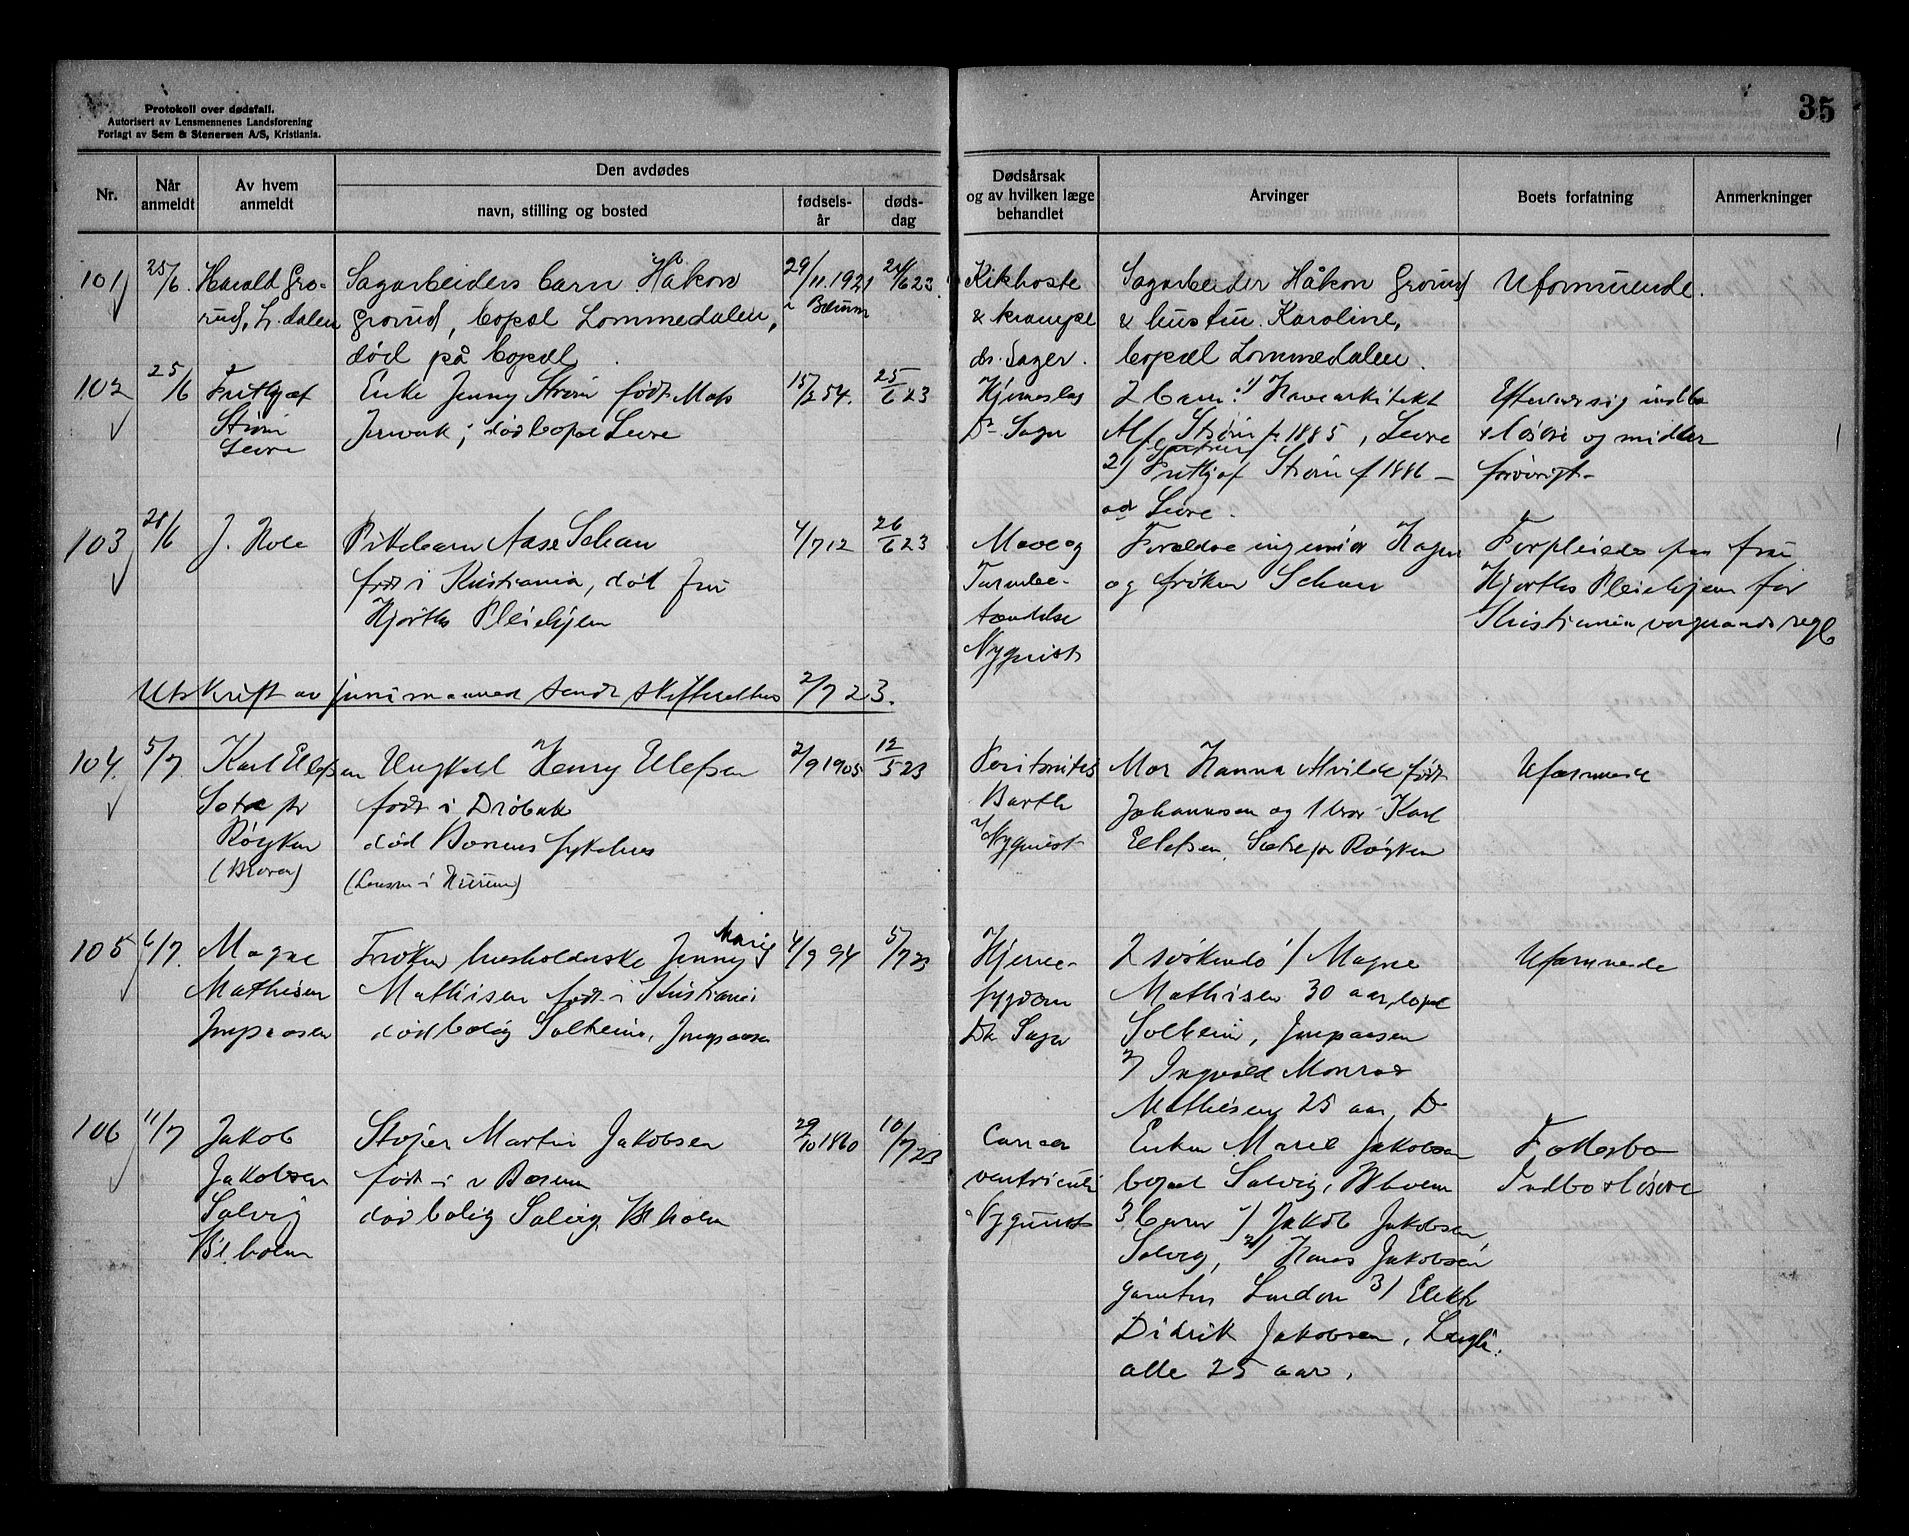 Protokoll over dødsfall.
Autorisert av Lensmennenes Landsforening
Forlagt av Sem & Stenersen A/S, Kristiania.
35
Nr.
Når anmeldt
Av hvem anmeldt
Den avdødes
navn, stilling og bosted
fødsels-år
døds-dag
Dødsårsak og av hvilken læge behandlet
Arvinger
Boets forfatning
Anmerkninger
101
25/6
Harald Gro-
rud, L. dalen
Sagarbeiders barn Håkon
Grorud, bopæl Lommedalen,
død på bopæl
29/11 1921
i Bærum
24/6 23
Kikhoste
& krampe
dr. Sager.
Sagarbeider Håkon Grorud
& hustru Karoline,
bopæl Lommedalen.
Uformuende.
102
25/6
Fritjof
Strøm
Enke Jenny Strøm født
død bopæl
15/2 54.
25/6 23
Dr Sager
2 barn: 1) Havearkitekt
Alf Strøm f. 1885,
2) Fritjof Strøm f 1886
Efterlod sig indbo
& løsøre og midler
forøvrigt
103
28/6
J. Hole
Pikebarn Aase Schau
født i Kristiania, død fru
Hjorths Pleiehjem
4/7 12
26/6 23
Mave og
Tarmbe-
tændelse
Nyquist
Forældre ingeniør Hagen
og frøken Schau
Forpleiedes paa fru
Hjorths Pleiehjem for
Kristiania vergeraads regl
Utskrift av juni maaned sendt skifteretten 2/7 23.
104.
5/7
Karl Ellefsen
Sætre pr
Røyken
(Broren)
Ungkarl Henry Ellefsen
født i Drøbak
død Bærums sykehus
(Lensm i Hurum)
2/9 1905
12/5 23
Peritonitis
Barth
Nyquist
Mor Hanna Alvilde født
Johannesen og 1 bror Karl
Ellefsen, Sætre pr Røyken
Uformuende
105
6/7.
Magne
Mathisen
Frøken husholderske Jenny Marie
Mathisen født i Kristiania
død bolig Solheim,
4/9 94
5/7 23
Hjerne-
sygdom
Dr. Sager
2 søskende 1) Magne
Mathisen 30 aar, bopæl
Solheim,
2) Ingvald Monrad
Mathisen 25 aar, D
Uformuende
106
11/7
Jakob
Jakobsen
Solvig
Bl. holm
Martin Jakobsen
født i v Bærum
død bolig Solvig, Bl holm
29/10 1860
10/7 23
Cancer
ventriculi
Nyquist
Enken Marie Jakobsen
bopæl Solvig, Bl holm
3 barn 1) Jakob Jakobsen
Solvig, 2) Hans Jakobsen
gartner London 3) Elektr
Didrik Jakobsen,
alle 25 aar.
Fællesbo
Indbo & løsøre